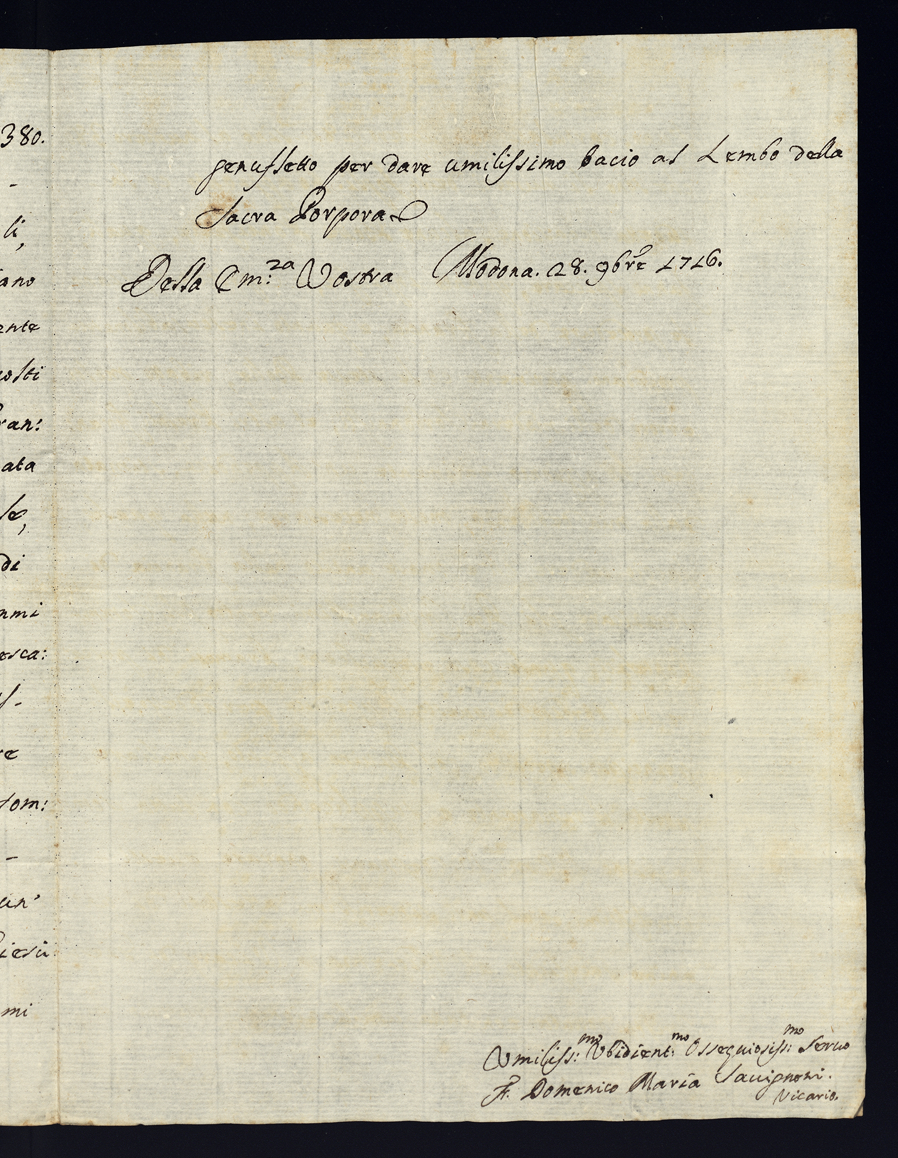 380.
-
li,
iano
ente
posti
ran:
ata
le,
di
nmi
esca:
ss-
re
tom:
-
un'
Giesù
mi
genuflesso per dare umilissimo bacio al Lembo della
Sacra Porpora
Della Em.za Vostra Modona. 28. 9bre 1716.
Umiliss:mo Obidient:mo Ossequiosiss:mo Seruo
F. Domenico Maria Sauignoni.
Vicario.